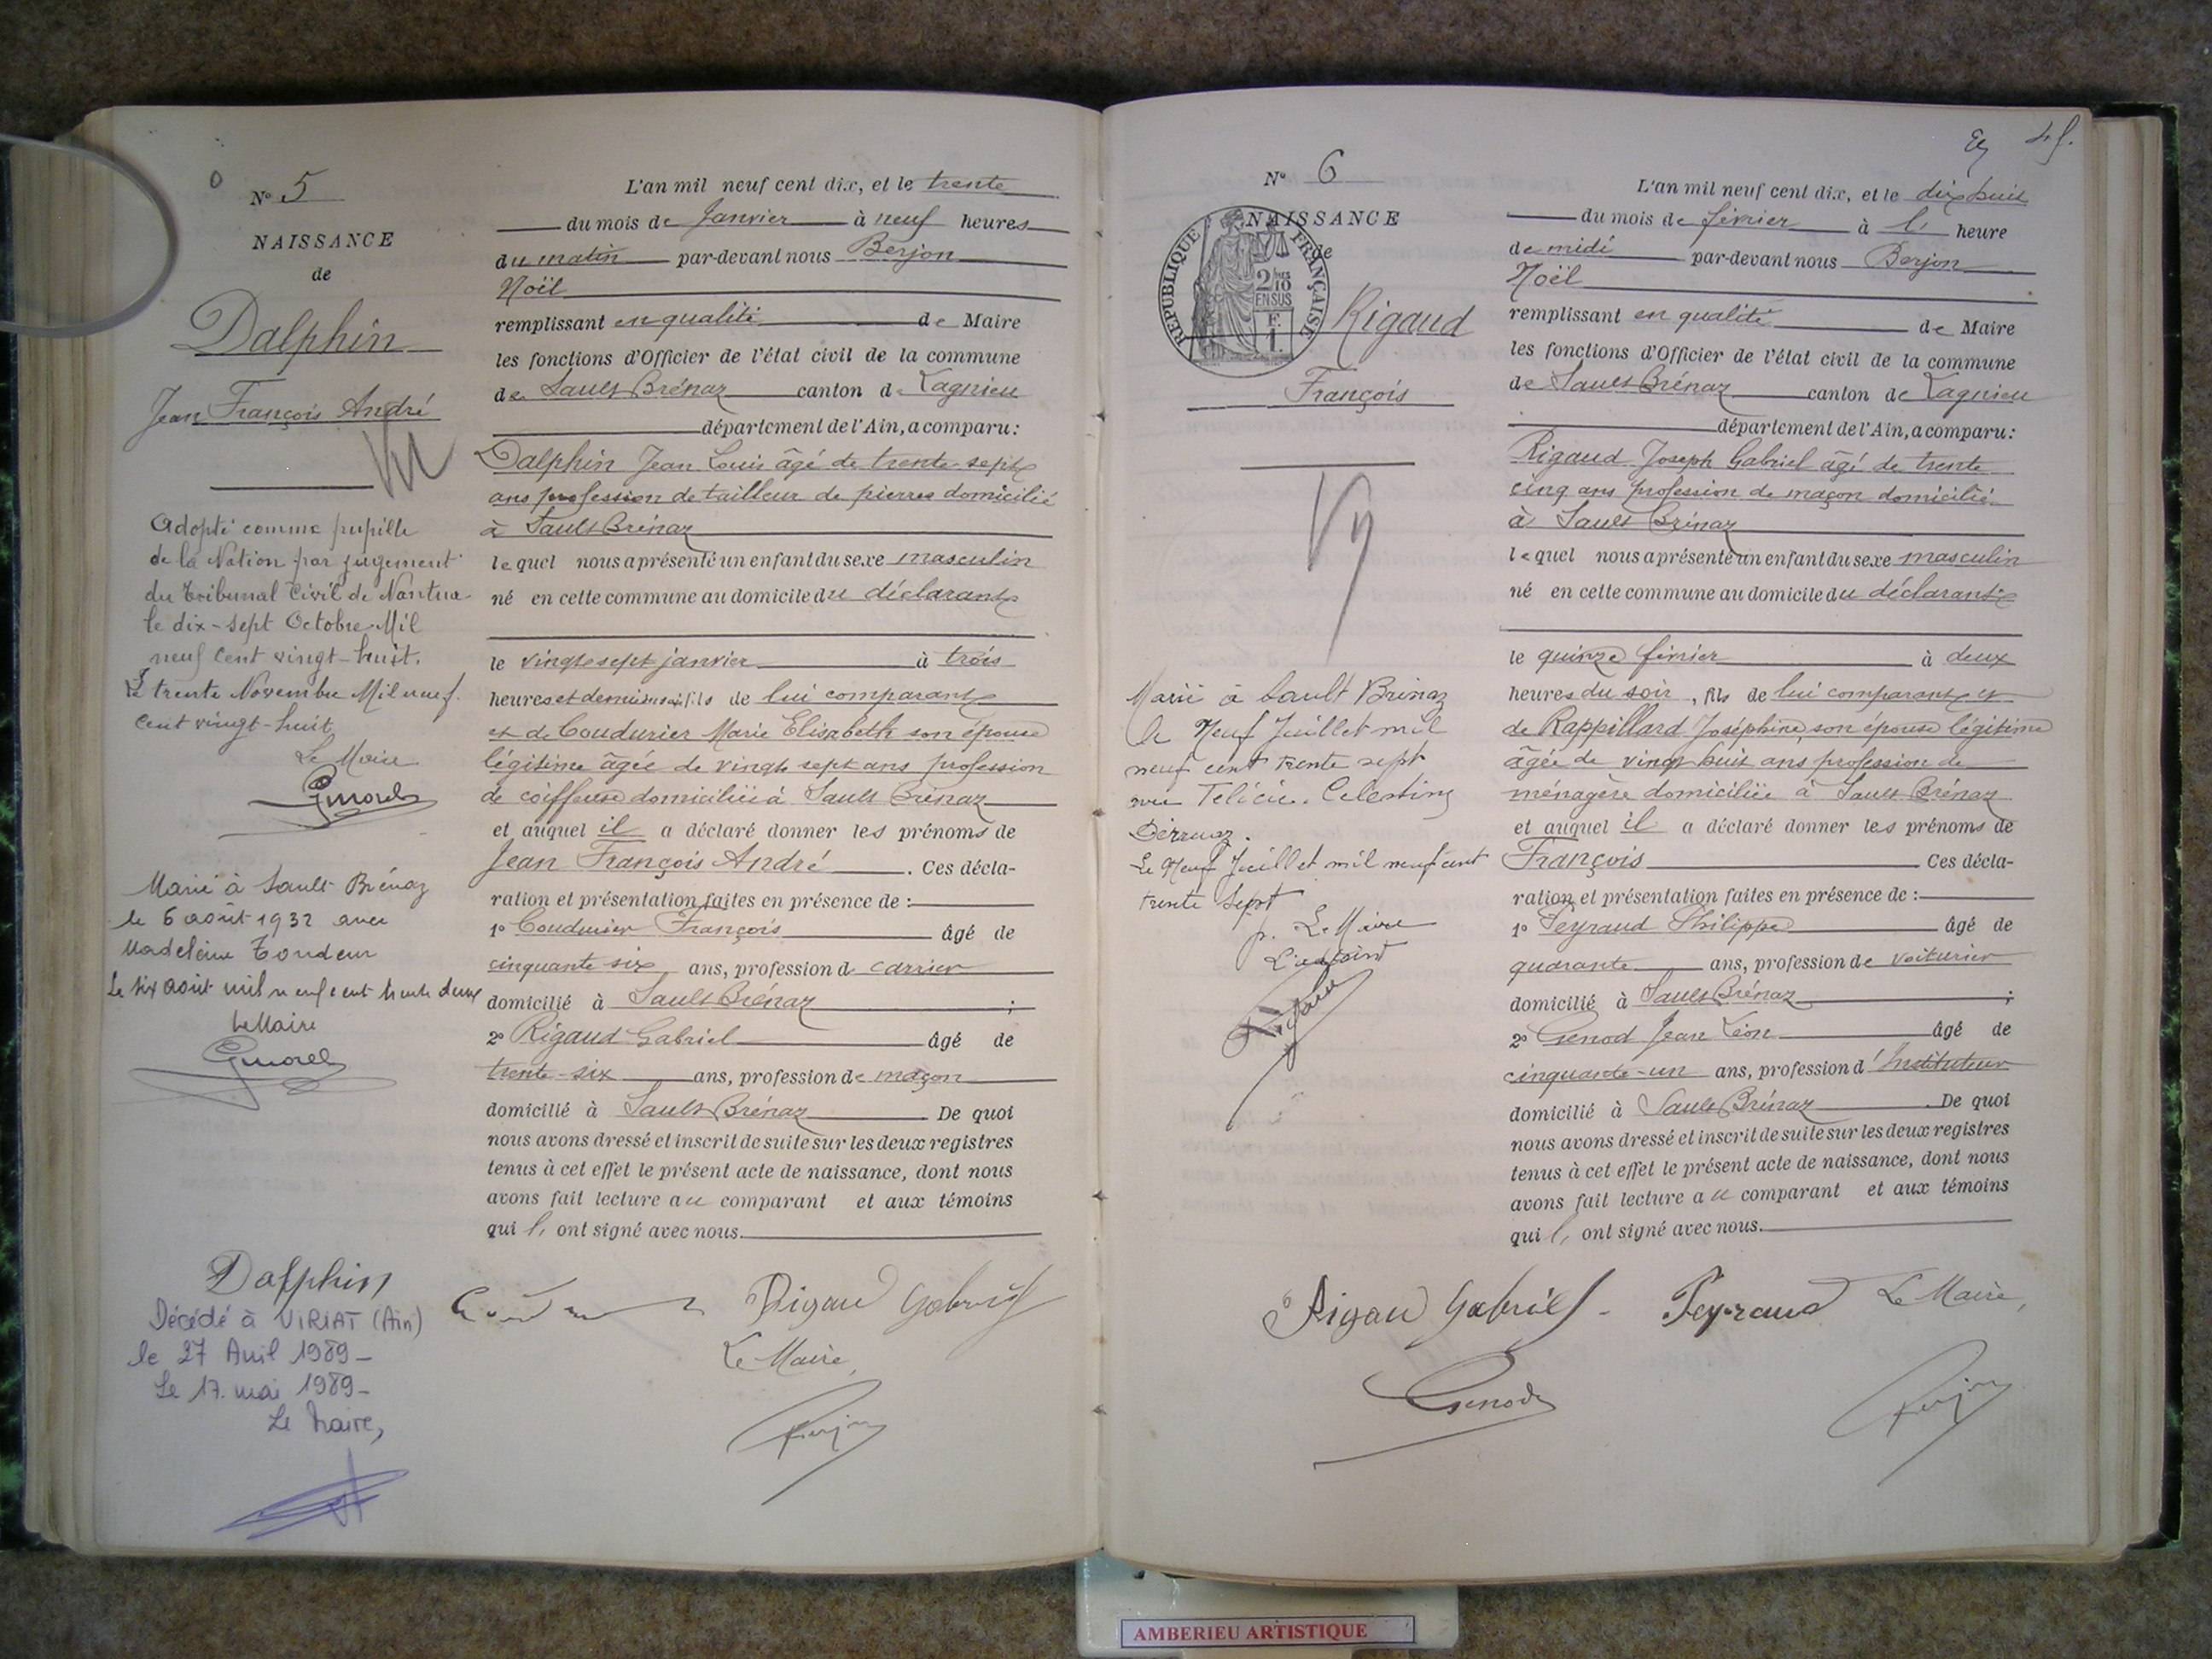 N° 5
NAISSANCE
de
Dalphin
Jean François André
Adopté comme pupille
de la Nation par jugement
du Tribunal Civil de Nantua
le dix-sept Octobre Mil
neuf cent vingt-huit.
Le trente Novembre Mil neuf
cent vingt-huit
Le Maire
Marié à Sault-Brénaz
le 6 août 1932 avec
Madeleine Tondeur
Le six août mil neuf cent trente deux
Le Maire
Décédé à VIRIAT (Ain)
le 27 Avril 1989-
Le 17 mai 1989-
Le Maire,
L'an mil neuf cent dix, et le trente
du mois de Janvier à neuf heures
du matin par-devant nous Berjon
Noël
remplissant en qualité de Maire
les fonctions d'Officier de l'état civil de la commune
de Sault Brénaz canton de Lagnieu
département de l'Ain, a comparu:
Dalphin Jean Louis âgé de trente-sept
ans profession de tailleur de pierres domicilié
à Sault Brénaz
lequel nous a présenté un enfant du sexe masculin
né en cette commune au domicile du déclarant
le vingt sept janvier à trois
heures et demie fils de lui comparant
et de Coudurier Marie Elisabeth son épouse
légitime âgée de vingt sept ans profession
de coiffeuse domiciliée à Sault Brénaz
et auquel il a déclaré donner les prénoms de
Jean François André. Ces décla-
ration et présentation faites en présence de:
1° Coudurier François âgé de
cinquante six ans, profession de carrier
domicilié à Sault Brénaz;
2° Rigaud Gabriel âgé de
trente-six ans, profession de maçon
domicilié à Sault Brénaz De quoi
nous avons dressé et inscrit de suite sur les deux registres
tenus à cet effet le présent acte de naissance, dont nous
avons fait lecture au comparant et aux témoins
qui l' ont signé avec nous.
Dalphin Rigaud Gabriel
Le Maire,
Berjon
N° 6
NAISSANCE
de
REPUBLIQUE FRANÇAISE
2/10
EN SUS
Rigaud
François
Marié à Sault Brénaz
le Neuf Juillet mil
neuf cent trente sept
avec Félicie. Celestine
Le Neuf Juillet mil neuf cent
trente sept
p. Le Maire
L'adjoint
L'an mil neuf cent dix, et le dix huit
du mois de février à l' heure
de midi par-devant nous Berjon
Noël
remplissant en qualité de Maire
les fonctions d'Officier de l'état civil de la commune
de Sault Brénaz canton de Lagnieu
département de l'Ain, a comparu:
Rigaud Joseph Gabriel âgé de trente
cinq ans profession de maçon domicilié
à Sault Brénaz
lequel nous a présenté un enfant du sexe masculin
né en cette commune au domicile du déclarant
le quinze février à deux
heures du soir, fils de lui comparant et
de Rappillard Joséphine, son épouse légitime
âgée de vingt huit ans profession de
ménagère domiciliée à Sault Brénaz
et auquel il a déclaré donner les prénoms de
François Ces décla-
ration et présentation faites en présence de:
1° Peyraud Philippe âgé de
quarante ans, profession de voiturier
domicilié à Sault Brénaz;
2° Genod Jean Léon âgé de
cinquante-un ans, profession d'Instituteur
domicilié à Sault Brénaz. De quoi
nous avons dressé et inscrit de suite sur les deux registres
tenus à cet effet le présent acte de naissance, dont nous
avons fait lecture au comparant et aux témoins
qui l' ont signé avec nous.
Rigaud Gabriel - Peyraud Le Maire,
Genod Berjon
AMBERIEU ARTISTIQUE